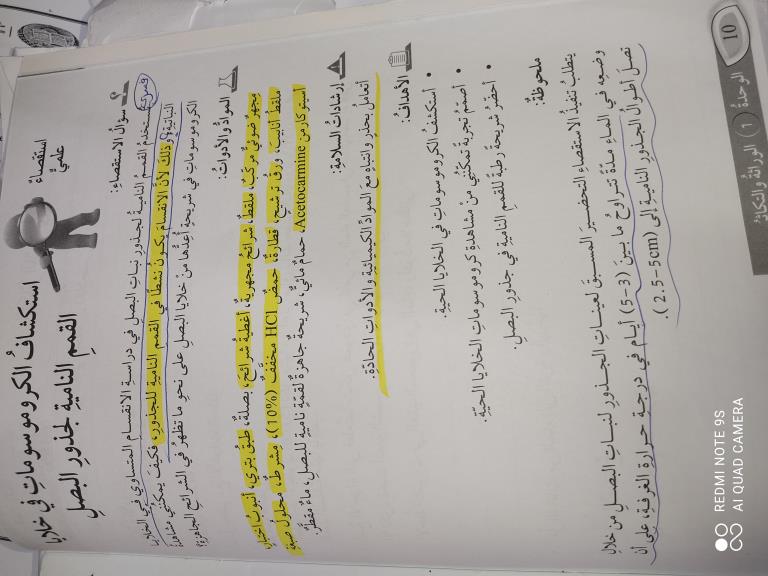 استقصاء
علمي
استكشاف الكروموسومات في خلايا
القمم النامية لجذور البصل
سؤال الاستقصاء:
تُستخدمُ القممُ الناميةُ لجذورِ نباتِ البصلِ في دراسةِ الانقسامِ المتساوي في الخلايا
النباتيةِ؛ وذلكَ لأنَّ الانقسامَ يكونُ نشطًا في القممِ الناميةِ للجذورِ، فكيفَ يمكنُني مشاهدةُ
الكروموسوماتِ في شريحةٍ أُعدُّها منْ خلايا البصلِ على نحوِ ما تظهرُ في الشرائحِ الجاهزةِ؟
الموادُّ والأدواتُ:
مِجهرٌ ضوئيٌّ مركبٌ، ملقطٌ، شرائحُ مجهريةٌ، أغطيةُ شرائحَ، بصلةٌ، طبقُ بتري، أنبوبُ اختبارٍ،
ملقطُ أنابيبَ، ورقُ ترشيحٍ، قطّارةٌ، حمضُ HCl مخففٌ (10%)، مِشرطٌ، محلولُ صبغةِ
أسيتوكارمن Acetocarmine، حمامٌ مائيٌّ، شريحةٌ جاهزةٌ لقمةٍ ناميةٍ للبصلِ، ماءٌ مقطرٌ.
إرشاداتُ السلامةِ:
أتعاملُ بحذرٍ وانتباهٍ معَ الموادِّ الكيميائيةِ والأدواتِ الحادّةِ.
الأهدافُ:
• أستكشفُ الكروموسوماتِ في الخلايا الحيّةِ.
• أُصمّمُ تجربةً تمكّنُني منْ مشاهدةِ كروموسوماتِ الخلايا الحيّةِ.
• أُحضّرُ شريحةً رطبةً للقممِ الناميةِ في جذورِ البصلِ.
ملحوظةٌ:
يتطلبُ تنفيذُ الاستقصاءِ التحضيرَ المسبقَ لعيناتِ الجذورِ لنباتِ البصلِ منْ خلالِ
وضعِهِ في الماءِ مدّةً تتراوحُ ما بينَ (3-5) أيامٍ في درجةِ حرارةِ الغرفةِ، على أنْ
تصلَ أطوالُ الجذورِ الناميةِ إلى (2.5-5cm).
10
الوحدةُ (1) الوراثةُ والتكاثرُ
REDMI NOTE 9S
AI QUAD CAMERA